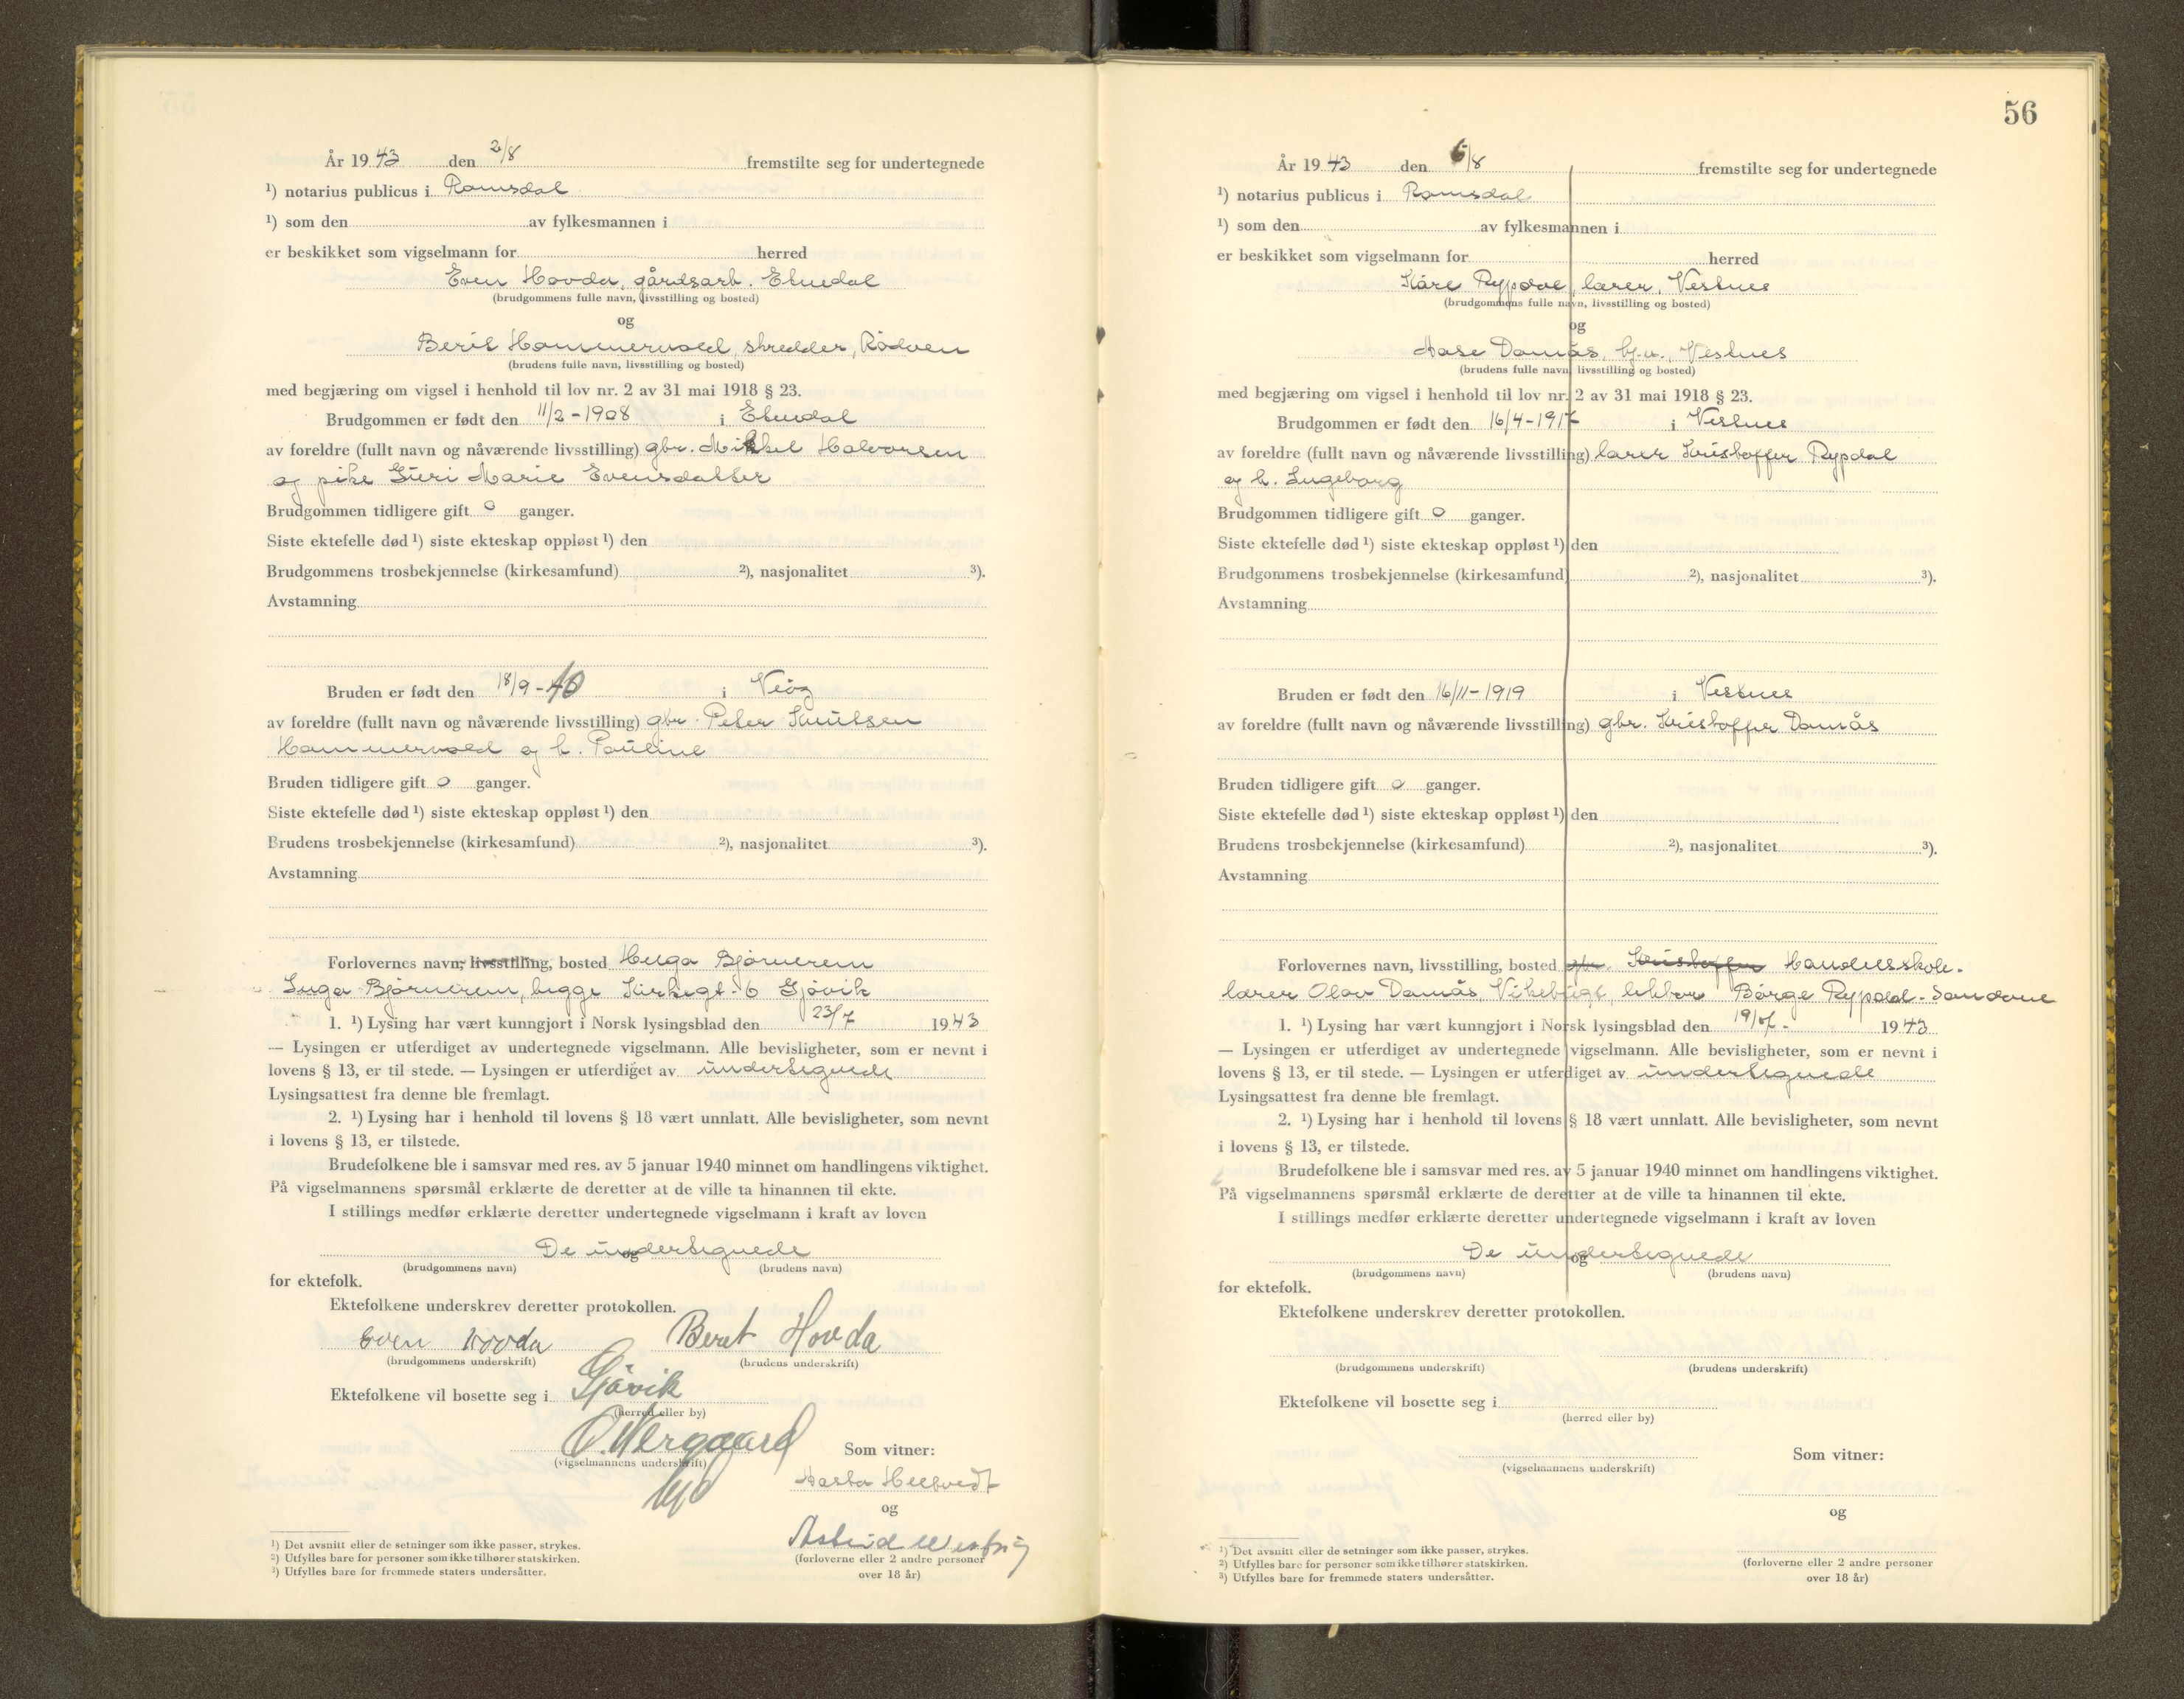 År 1943 den 2/8 fremstilte seg for undertegnede
¹) notarius publicus i Romsdal
¹) som den av fylkesmannen i
er beskikket som vigselmann for herred
Even Hovda, gårdsarb. Etnedal
(brudgommens fulle navn, livsstilling og bosted)
og
Berit Hammervold, skredder, Rødven
(brudens fulle navn, livsstilling og bosted)
med begjæring om vigsel i henhold til lov nr. 2 av 31 mai 1918 § 23.
Brudgommen er født den 11/2-1908 i Etnedal
av foreldre (fullt navn og nåværende livsstilling) gbr. Mikkel Halvorsen
og pike Guri Marie Evensdatter
Brudgommen tidligere gift 0 ganger.
Siste ektefelle død ¹) siste ekteskap oppløst ¹) den
Brudgommens trosbekjennelse (kirkesamfund) ²), nasjonalitet ³).
Avstamning
Bruden er født den 18/9-10 i Veøy
av foreldre (fullt navn og nåværende livsstilling) gbr. Peter Knutsen
Hammervold og h. Pauline
Bruden tidligere gift 0 ganger.
Siste ektefelle død ¹) siste ekteskap oppløst ¹) den
Brudens trosbekjennelse (kirkesamfund) ²), nasjonalitet ³).
Avstamning
Forlovernes navn, livsstilling, bosted Helga Bjørnerem
Inga Bjørnerem, begge Kirkegt. 6 Gjøvik
1. ¹) Lysing har vært kunngjort i Norsk lysingsblad den 23/7 1943
— Lysingen er utferdiget av undertegnede vigselmann. Alle bevisligheter, som er nevnt i
lovens § 13, er til stede. — Lysingen er utferdiget av undertegnede
Lysingsattest fra denne ble fremlagt.
2. ¹) Lysing har i henhold til lovens § 18 vært unnlatt. Alle bevisligheter, som nevnt
i lovens § 13, er tilstede.
Brudefolkene ble i samsvar med res. av 5 januar 1940 minnet om handlingens viktighet.
På vigselmannens spørsmål erklærte de deretter at de ville ta hinannen til ekte.
I stillings medfør erklærte deretter undertegnede vigselmann i kraft av loven
De undertegnede
og
(brudgommens navn) (brudens navn)
for ektefolk.
Ektefolkene underskrev deretter protokollen.
Even Hovda Berit Hovda
(brudgommens underskrift) (brudens underskrift)
Ektefolkene vil bosette seg i Gjøvik
(herred eller by)
O. Nergaard
(vigselmannens underskrift)
Som vitner:
og
Astrid
(forloverne eller 2 andre personer
over 18 år)
¹) Det avsnitt eller de setninger som ikke passer, strykes.
²) Utfylles bare for personer som ikke tilhører statskirken.
³) Utfylles bare for fremmede staters undersåtter.
56
År 1943 den 6/8 fremstilte seg for undertegnede
¹) notarius publicus i Romsdal
¹) som den av fylkesmannen i
er beskikket som vigselmann for herred
Kåre Rypdal, lærer, Vestnes
(brudgommens fulle navn, livsstilling og bosted)
og
Aase Damås, hj.v., Vestnes
(brudens fulle navn, livsstilling og bosted)
med begjæring om vigsel i henhold til lov nr. 2 av 31 mai 1918 § 23.
Brudgommen er født den 16/4-1917 i Vestnes
av foreldre (fullt navn og nåværende livsstilling) lærer Kristoffer Rypdal
og h. Ingeborg
Brudgommen tidligere gift 0 ganger.
Siste ektefelle død ¹) siste ekteskap oppløst ¹) den
Brudgommens trosbekjennelse (kirkesamfund) ²), nasjonalitet ³).
Avstamning
Bruden er født den 16/11-1919 i Vestnes
av foreldre (fullt navn og nåværende livsstilling) gbr. Kristoffer Damås
Bruden tidligere gift 0 ganger.
Siste ektefelle død ¹) siste ekteskap oppløst ¹) den
Brudens trosbekjennelse (kirkesamfund) ²), nasjonalitet ³).
Avstamning
Forlovernes navn, livsstilling, bosted gbr. Kristoffer Handelsskole-
lærer Olav Damås, Vikebugt, lektor Børge Rypdal - Sandane
1. ¹) Lysing har vært kunngjort i Norsk lysingsblad den 19/7- 1943
— Lysingen er utferdiget av undertegnede vigselmann. Alle bevisligheter, som er nevnt i
lovens § 13, er til stede. — Lysingen er utferdiget av undertegnede
Lysingsattest fra denne ble fremlagt.
2. ¹) Lysing har i henhold til lovens § 18 vært unnlatt. Alle bevisligheter, som nevnt
i lovens § 13, er tilstede.
Brudefolkene ble i samsvar med res. av 5 januar 1940 minnet om handlingens viktighet.
På vigselmannens spørsmål erklærte de deretter at de ville ta hinannen til ekte.
I stillings medfør erklærte deretter undertegnede vigselmann i kraft av loven
De undertegnede
og
(brudgommens navn) (brudens navn)
for ektefolk.
Ektefolkene underskrev deretter protokollen.
(brudgommens underskrift) (brudens underskrift)
Ektefolkene vil bosette seg i
(herred eller by)
(vigselmannens underskrift)
Som vitner:
og
(forloverne eller 2 andre personer
over 18 år)
¹) Det avsnitt eller de setninger som ikke passer, strykes.
²) Utfylles bare for personer som ikke tilhører statskirken.
³) Utfylles bare for fremmede staters undersåtter.